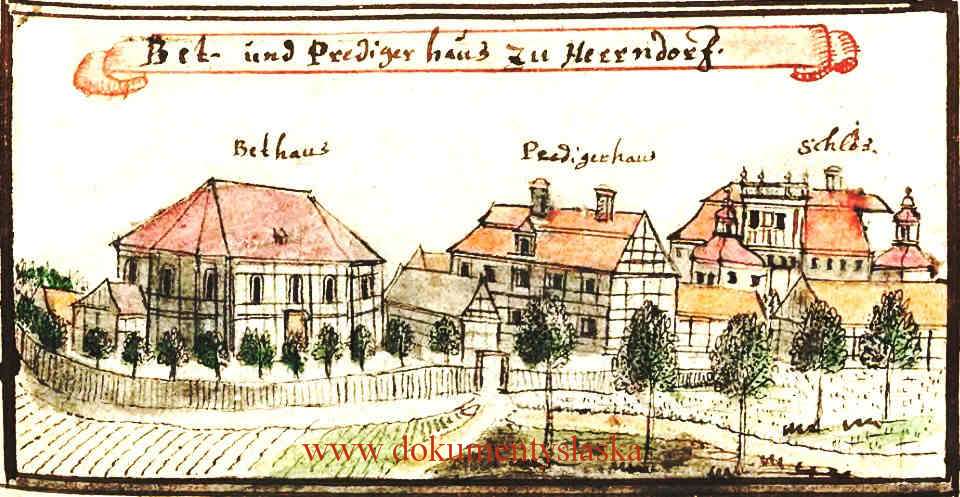 Bet- und Prediger haus zu Herrndorf.
Bethaus
Predigerhaus
Schlos.
www.dokumentyslaska